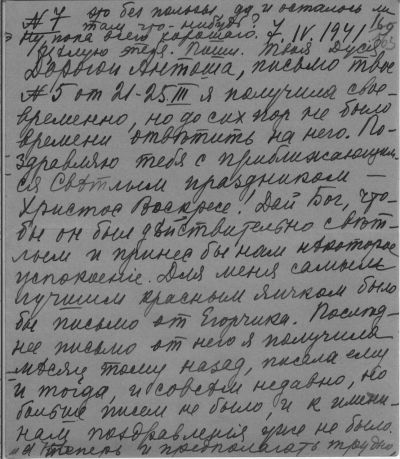 № 7 это без пользы, да и осталось ли
там что-нибудь?
Ну, пока всего хорошого. 7. IV. 1941
Целую тебя. Пиши. Твоя Дуся.
Дорогой Антоша, письмо твое
№ 5 от 21-25.III я получила свое-
временно, но до сих пор не было
времени ответить на него. По-
здравляю тебя с приближающим-
ся Свѣтлым праздником —
Христос Воскресе! Дай Бог, что-
бы он был дѣйствительно свѣт-
лым и принес бы нам нѣкоторое
успокоение. Для меня самым
лучшим красным яичком было
бы письмо от Егорчика. Послѣд-
нее письмо от него я получила
мѣсяц тому назад, писала ему
и тогда, и совсѣм недавно, но
больше писем не было, и к имени-
нам поздравления уже не было.
А теперь и предполагать трудно